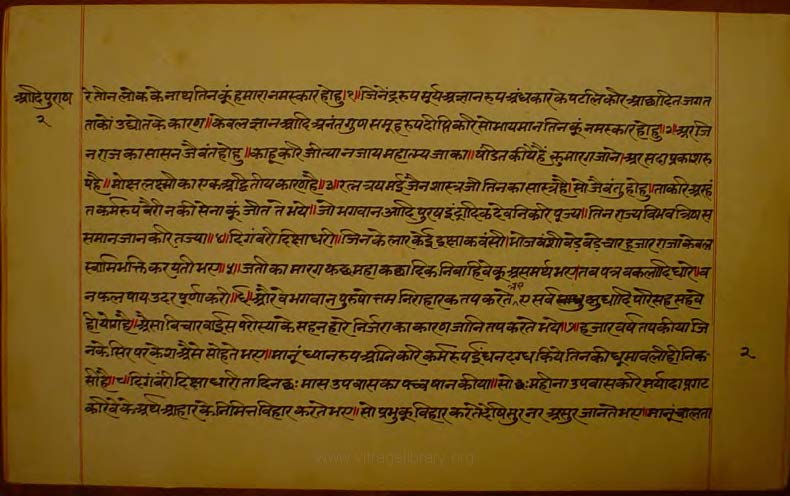 आदिपुराण
२
रे तीन लोक के नाथ तिन कूं हमारा नमस्कार होहु॥१॥जिनेंद्ररुप सूर्य अज्ञान रुप अंधकार के पटलि करि आछादित जगत
ताकों उद्योत के कारण॥केवल ज्ञान आदि अनंत गुण समूह रुप दीप्ति करि सोभायमान तिन कूं नमस्कार होहु॥२॥अर जि
न राज का सासन जैवंत होहु॥काहू करि जीत्या न जाय महात्म्य जाका॥षंडित कीये हैं कुमारग जाने॥अर सदा प्रकाश रु
प है॥मोक्ष लक्ष्मी का एक अद्वितीय कारण है॥३॥रत्न त्रय मई जैन शास्त्र जो तिन का सास्त्र है॥सो जैवंतु होहु॥ताकरि अरहं
त कर्मरुप बैरीन की सेना कूं जीत ते भये॥जो भगवान आदि पुरुष इंद्रादिक देवनि करि पूज्या॥तिन राज्य विभव त्रिण स
समान जान करि तज्या॥४॥दिगंबरी दिक्षा धरी॥जिन के लार केई इक्षाक वंसी भोज वंशी बडे बडे च्यार हजार राजा केवल
स्वामि भक्ति कर यती भए॥५॥जती का मारग कछ महा कछादिक निवाहिवे कू असमर्थ भए॥तब पत्र वकलादि धारे॥व
न फल षाय उदर पूर्णा करी॥६॥और वे भगवान पुरुषोत्तम निराहार क तप करते ए सर्व क्षुधादि परिसह सहवे
ही योग्य है॥असा बिचार वाईस परीस्या के सहन हार निर्जरा का कारण जानि तप करते भये॥७॥हजार वर्ष तप कीया जि
न के सिर पर केश असे सोहते भए॥मानूं ध्यान रुप अग्नि करि कर्म रुप ईंधन दग्ध किये तिन की धूमावली ही निक
सी है॥८॥दिगंबरी दिक्षा धारी ता दिन छः मास उपवास का पच्चषान कीया॥सो छः महीना उपवास करि मर्यादा प्रगट
करिवे के अर्थ आहार के निमित्त विहार करते भए॥सो प्रभु कू विहार करते देषि सुर नर असुर जानते भए॥मानूं चालता
२
www.vitragelibrary.org